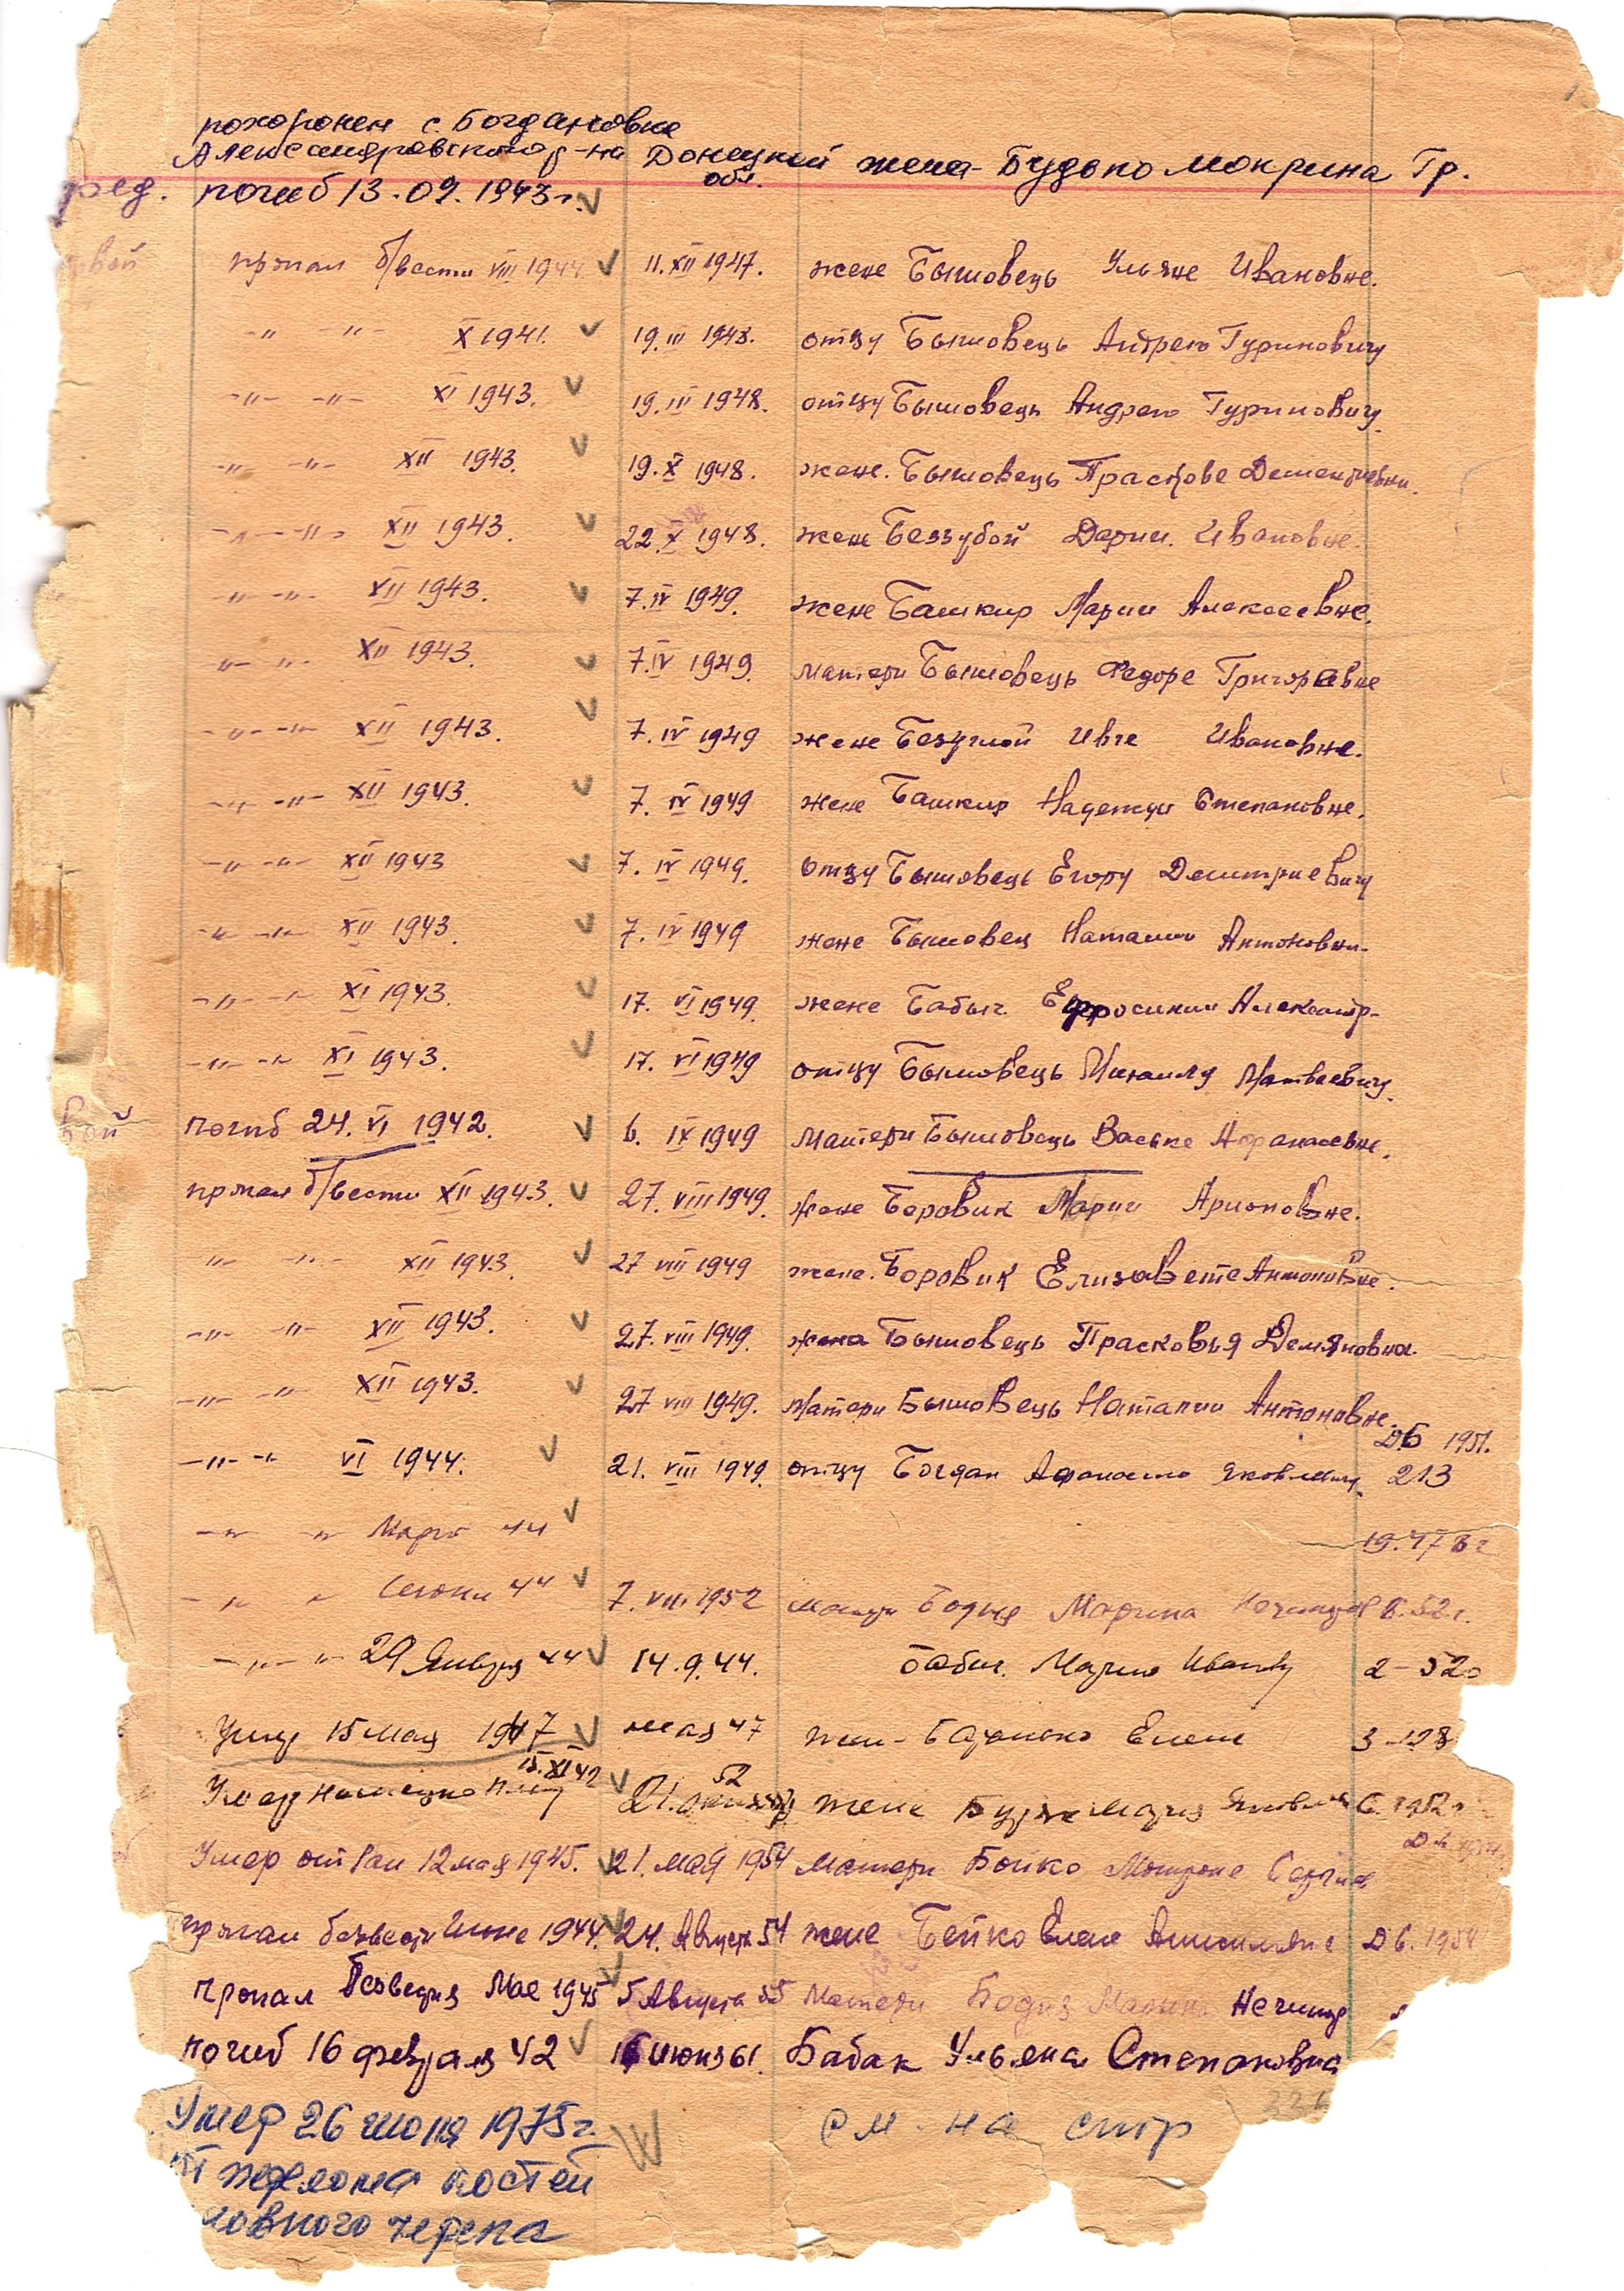 похоронен с. Богдановке
Александровского р-на Донецкой обл. жена - Будько Мокрина Гр.
ряд. погиб 13.09.1943 г. V
вой пропал б/вести VIII 1944 V 11. XII 1947. жене Бышовець Ульяне Ивановне.
-"- -"- X 1941. V 19. III 1948. отцу Бышовець Андрею Гуриновичу
-"- -"- XI 1943. V 19. III 1948. отцу Бышовець Андрею Гуриновичу.
-"- -"- XII 1943. V 19. X 1948. жене. Бышовець Прасковье
-"- -"- XII 1943. V 22. X 1948. жене Беззубой Дарии. Ивановне.
-"- -"- XII 1943. V 7. IV 1949. жене Башкир Марии Алексеевне.
-"- -"- XII 1943. V 7. IV 1949. матери Бышовець Федоре Григорьевне
-"- -"- XII 1943. V 7. IV 1949 жене Безуглой Ивге Ивановне.
-"- -"- XII 1943. V 7. IV 1949 жене Башкир Надежди Степановне.
-"- -"- XII 1943 V 7. IV 1949. отцу Бышовець Егору Дмитриевичу
-"- -"- XII 1943. V 7. IV 1949 жене Бышовец Наталии Антоновн-
-"- -"- XI 1943. V 17. VI 1949. жене Бабыч. Ефросинии Александр-
-"- -"- XI 1943. V 17. VI 1949 отцу Бышовець Михаилу Матвеевичу.
вой погиб 24. VI 1942. V 6. IX 1949 матери Бышовець Ваське Афанасевне.
пропал б/вести XII 1943. V 27. VIII 1949. жене Боровик Марии
-"- -"- XII 1943. V 27 VIII 1949 жене. Боровик Елизавете Антоновне.
-"- -"- XII 1943. V 27. VIII 1949. жена Бышовець Прасковья Демяновна.
-"- -"- XII 1943. V 27 VIII 1949. матери Бышовець Наталии Антоновне.
Д6 1951.
-"- -"- VI 1944. V 21. VIII 1949. отцу Богдан Афанасию Яковлевичу. 213
-"- " Март 44 V 19.47
-"- " 44 V 7. VIII 1952 матери Бодня Марина 52 г.
-"- " 29 Января 44 V 14.9.44. Бабич. Марию 2-520
Умер 15 мая 1947 V мая 47 жен- Елене 3-128
15. XI 42 52
Умер V 21. жене Мария 1952 г
Умер от ран 12 мая 1945. V 21. мая 1954 матери Бойко Мотроне
пропал безвести Июне 1944. V 24. Августа 54 жене Бейко Елене Д6. 1954
пропал безвести Мае 1945 V 5 Августа 55 матери Бодня Марина Нечипор
погиб 16 февраля 42 V 16 июня 61. Бабак Ульяна Степановна
Умер 26 июня 1975 г. V см. на стр 221
перелома костей
черепа